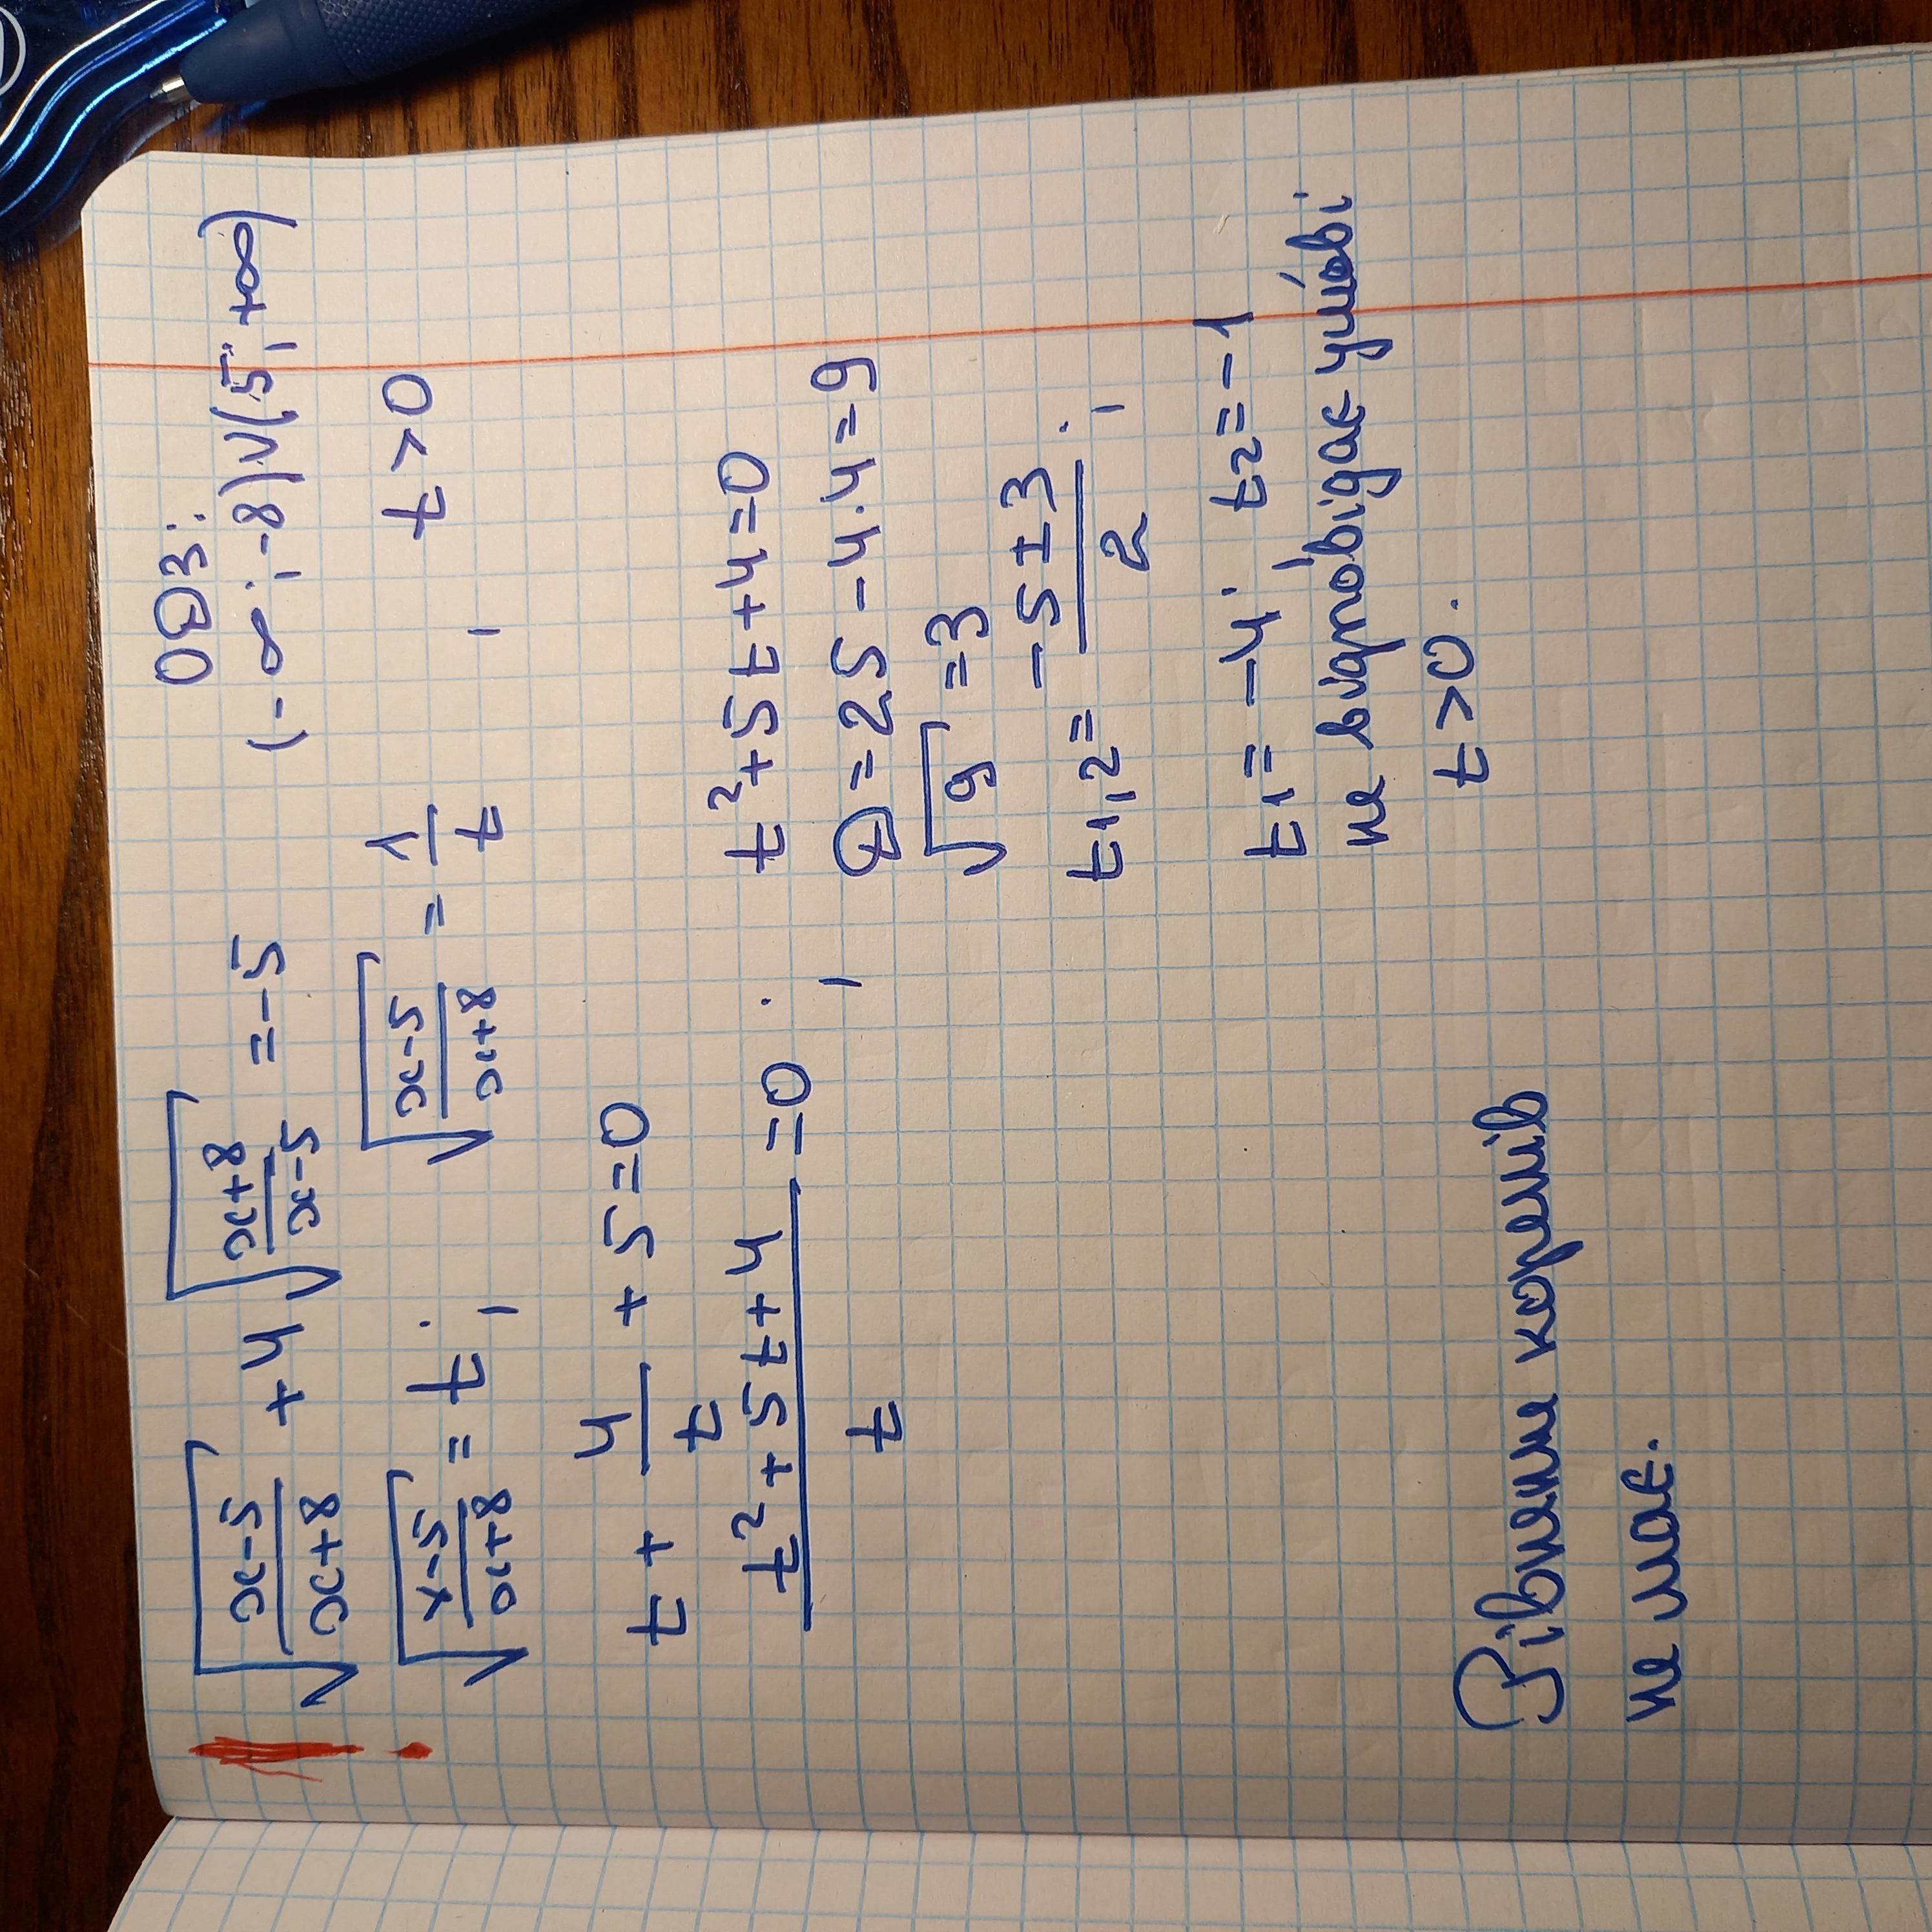 √((x-5)/(x+8)) + 4√((x+8)/(x-5)) = -5
ОДЗ:
(-∞; -8)∪(5; +∞)
√((x-5)/(x+8)) = t; √((x-5)/(x+8)) = 1/t, t > 0
t + 4/t + 5 = 0
(t² + 5t + 4)/t = 0;
t² + 5t + 4 = 0
D = 25 - 4·4 = 9
√9 = 3
t1,2 = (-5 ± 3)/2;
t1 = -4; t2 = -1
не відповідає умові
t > 0.
Рівняння коренів
не має.